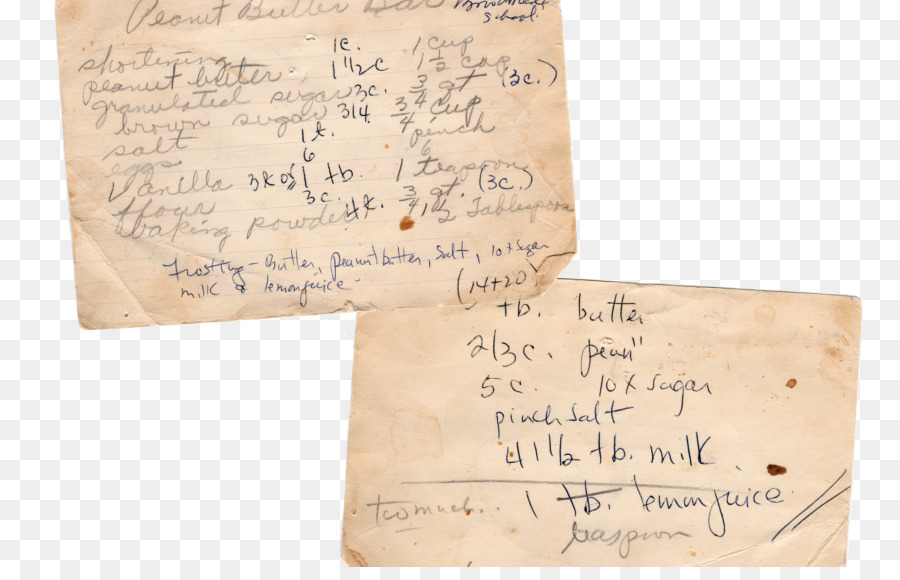 Peanut Butter Bar
School.
shortening 1c. 1 cup
peanut butter 1 1/2 c 1 1/2 cup
granulated sugar 3c. 3/4 qt (3c.)
brown sugar 3/4 3/4 cup
salt 1 t. pinch
eggs 6 6
Vanilla 1 tb. 1 teaspoon
flour 3c. 3/4 qt. (3c.)
baking powder 4t. 1 1/2 Tablespoon
Frosting - Butter, peanut butter, salt, 10x sugar
milk & lemon juice -
(14+20)
tb. butter
2/3 c. pean"
5 c. 10 x sugar
pinch salt
4 1/2 tb. milk
too much.. 1 tb. lemon juice
teaspoon